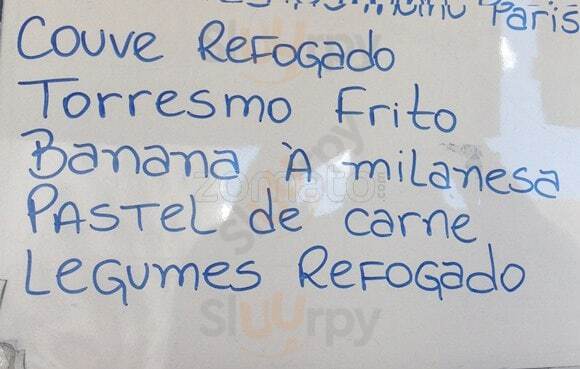 Paris
Couve Refogado
Torresmo Frito
Banana À milanesa
Pastel de carne
Legumes Refogado
zomato.com
Sluurpy
Sluurpy
Sluurpy